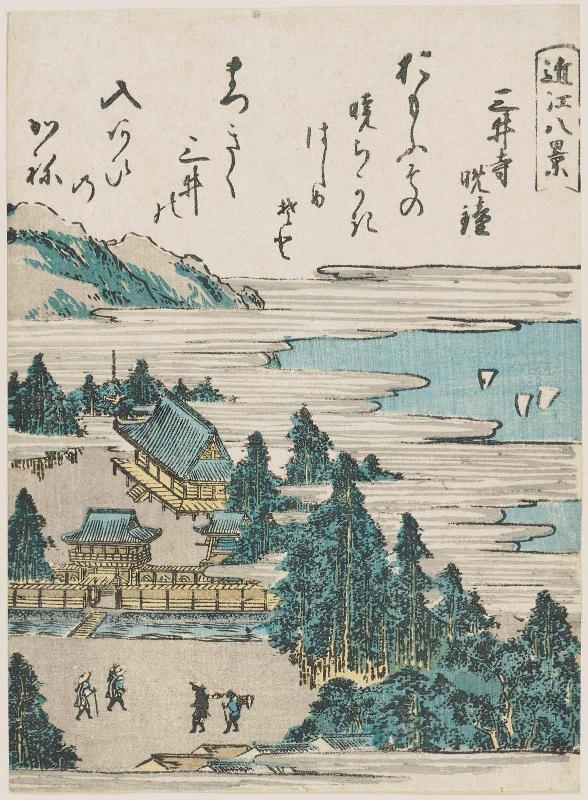 近江八景
三井寺
晩鐘
おもふその
暁ちきる
はしめ
そと
まつきく
三井
の
入あひ
の
かね